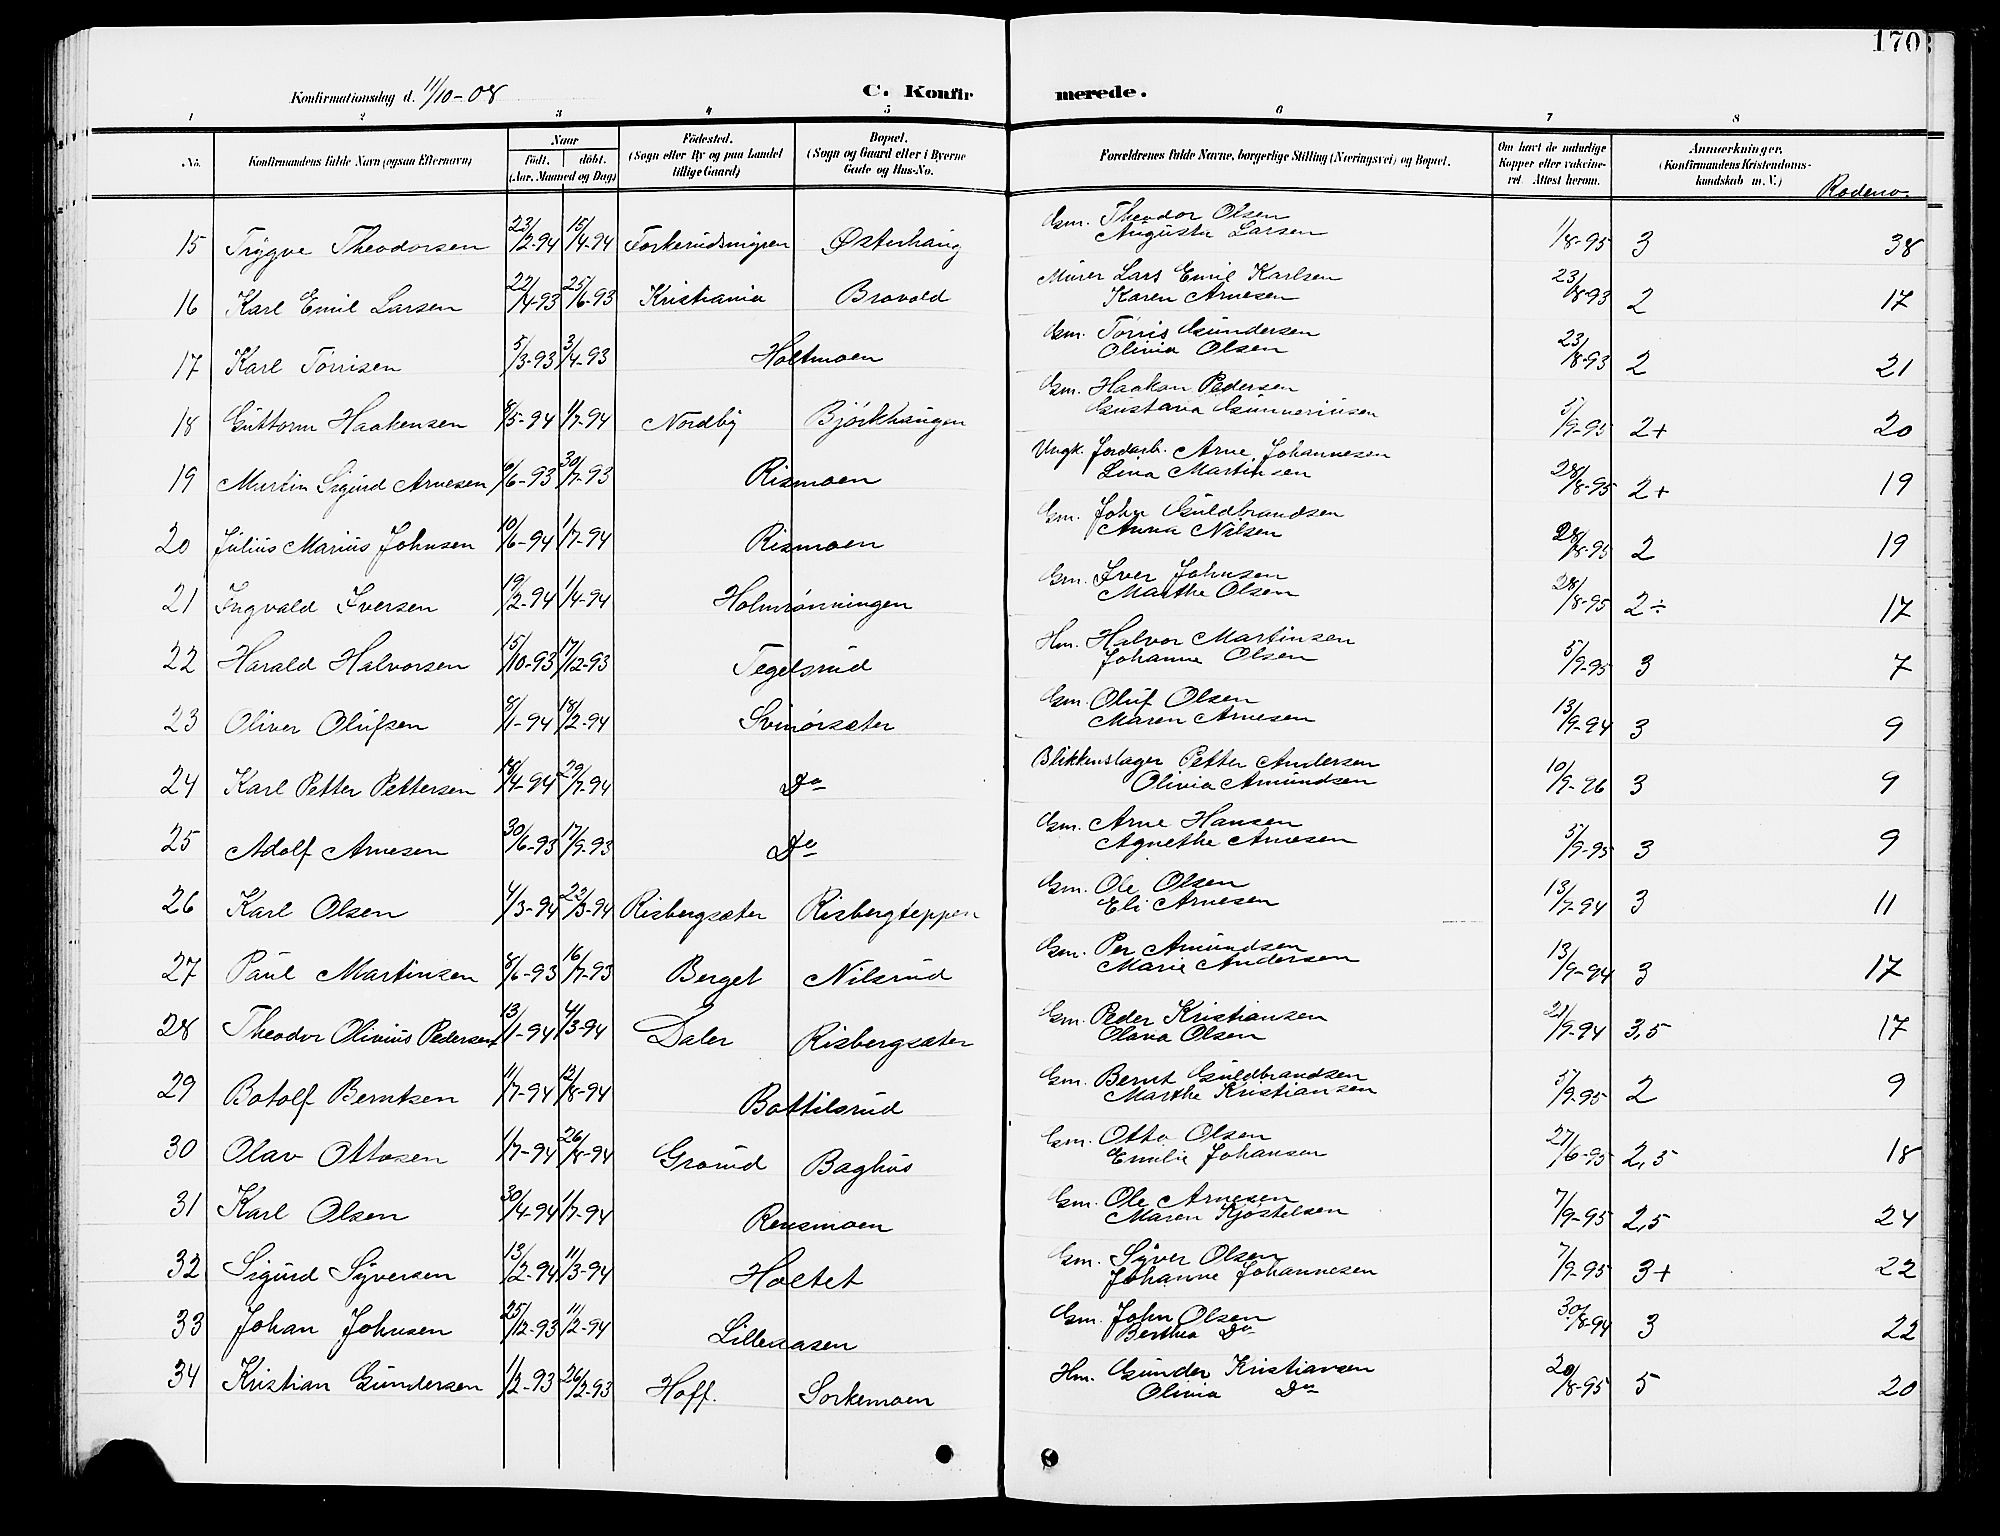 170
Konfirmationsdag d. 11/10-08
C. Konfirmerede.
1 2 3 4 5 6 7 8
No. Konfirmandens fulde Navn (ogsaa Efternavn) Naar Födt. döbt. (Aar, Maaned og Dag) Födested. (Sogn eller By og paa Landet tillige Gaard) Bopæl. (Sogn og Gaard eller i Byerne Gade og Hus-No. Forældrenes fulde Navne, borgerlige Stilling (Næringsvei) og Bopæl. Om havt de naturlige Kopper eller vakcineret. Attest herom. Anmærkninger, (Konfirmandens Kristendomskundskab m. V.) Rodeno.
15 Trygve Theodorsen 23/2-94 15/4-94 Torkerudsmyren Østerhaug Gm. Theodor Olsen 1/8-95 3 38
Augusta Larsen
16 Karl Emil Larsen 22/4-93 25/6-93 Kristiania Bravold Murer Lars Emil Karlsen 23/8-93 2 17
Karen Arnesen
17 Karl Tørrisen 5/3-93 3/4-93 Holtmoen Gm. Tørris Gundersen 23/8-93 2 21
Olivia Olsen
18 Guttorm Haakensen 8/5-94 1/7-94 Nordby Bjørkhaugen Gm. Haakan Pedersen 5/9-95 2+ 20
Gustava Gunneriusen
19 Martin Sigurd Arnesen 6/6-93 30/7-93 Rismoen Ungk. Jordarb. Arne Johannesen 28/8-95 2+ 19
Lina Martinsen
20 Julius Marius Johnsen 10/6-94 1/7-94 Rismoen Gm. John Guldbrandsen 28/8-95 2 19
Anna Nilsen
21 Ingvald Iversen 19/2-94 1/4-94 Holmrønningen Gm. Iver Johnsen 28/8-95 2÷ 17
Marthe Olsen
22 Harald Halvorsen 15/10-93 17/12-93 Tegelsrud Hm. Halvor Martinsen 5/9-95 3 7
Johanne Olsen
23 Oliver Olufsen 8/1-94 18/2-94 Svinørsæter Gm. Oluf Olsen 13/9-94 3 9
Maren Arnesen
24 Karl Petter Pettersen 18/4-94 29/7-94 Do Blikkenslager Petter Andersen 10/9-96 3 9
Olivia Amundsen
25 Adolf Arnesen 30/6-93 17/9-93 Do Gm. Arne Hansen 5/9-95 3 9
Agnethe Arnesen
26 Karl Olsen 4/3-94 22/3-94 Risbergsæter Risbergteppen Gm. Ole Olsen 13/7-94 3 11
Eli Arnesen
27 Paul Martinsen 8/6-93 16/7-93 Berget Nilsrud Gm. Per Amundsen 13/9-94 3 17
Marie Andersen
28 Theodor Olivius Pedersen 13/1-94 4/3-94 Daler Risbergsæter Gm. Peder Kristiansen 21/9-94 3,5 17
Olava Olsen
29 Botolf Berntsen 11/7-94 12/8-94 Bottilsrud Gm. Bernt Guldbrandsen 5/9-95 2 9
Marthe Kristiansen
30 Olav Ottosen 1/7-94 26/8-94 Grorud Baghus Gm. Otto Olsen 27/6-95 2,5 18
Emilie Johansen
31 Karl Olsen 30/4-94 1/7-94 Rensmoen Gm. Ole Arnesen 7/9-95 2,5 24
Maren Kjøstelsen
32 Sigurd Syversen 13/2-94 11/3-94 Holtet Gm. Syver Olsen 7/9-95 3+ 22
Johanne Johannesen
33 Johan Johnsen 25/12-93 11/2-94 Lilleaasen Gm. John Olsen 30/8-94 3 22
Berthea Do
34 Kristian Gundersen 1/2-93 26/2-93 Hoff. Sorkemoen Hm. Gunder Kristiansen 20/8-95 5 20
Olivia Do